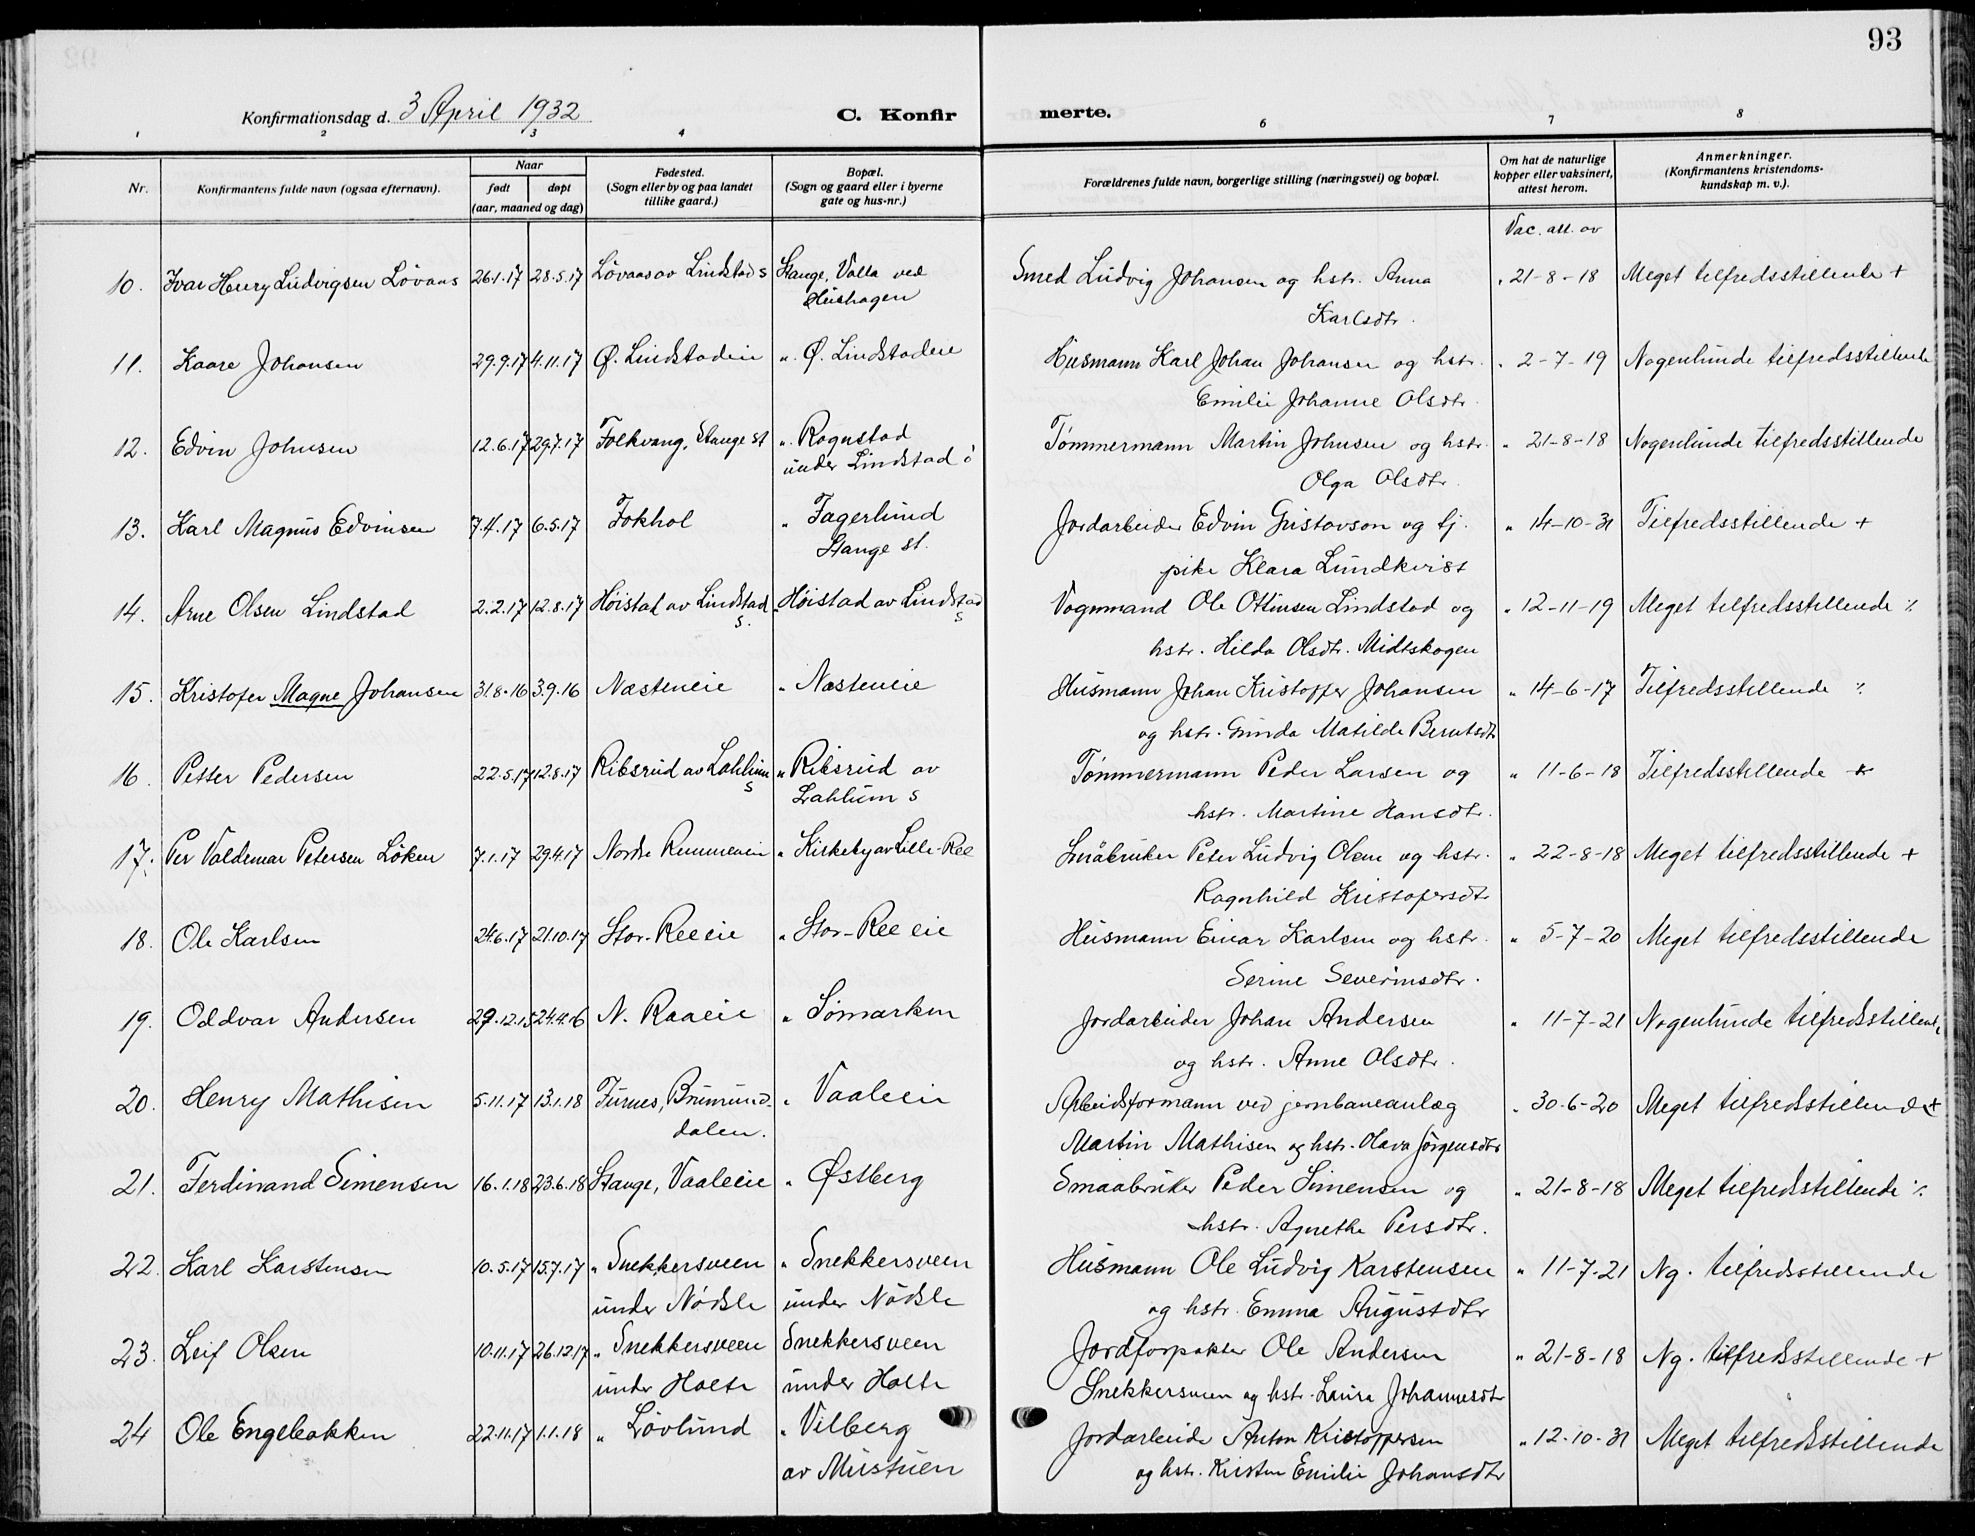 93
Konfirmationsdag d. 3 April 1932
C. Konfir merte.
1 2 3 4 6 7 8
Nr.
Konfirmantens fulde navn (ogsaa efternavn).
Naar
født
døpt
(aar, maaned og dag)
Fødested.
(Sogn eller by og paa landet
tillike gaard.)
Bopæl.
(Sogn og gaard eller i byerne
gate og hus-nr.)
Forældrenes fulde navn, borgerlige stilling (næringsvei) og bopæl.
Om hat de naturlige
kopper eller vaksinert,
attest herom.
Anmerkninger.
(Konfirmantens kristendoms-
kundskap m. v.).
Vac. att. av
10. Ivar Henry Ludvigsen Lövaas 26.1.17 28.5.17 Lövaas av Lindstad s Stange, Valla ved Smed Ludvig Johansen og hstr. Anna " 21-8-18 Meget tilfredsstillende +
Hushagen Karlsdtr.
11. Kaare Johansen 29.9.17 4.11.17 Ø. Lindstadeie " Ø. Lindstadeie Husmann Karl Johan Johansen og hstr. " 2-7-19 Nogenlunde tilfredsstillende
Emilie Johanne Olsdtr.
12. Edvin Johnsen 12.6.17 29.7.17 Folkvang, Stange st " Rognstad Tömmermann Martin Johnsen og hstr. " 21-8-18 Nogenlunde tilfredsstillende
under Lindstad ö Olga Olsdtr.
13. Karl Magnus Edvinsen 7.4.17 6.5.17 Fokhol " Fagerlund Jordarbeider Edvin Gustavson og tj. " 14-10-31 Tilfredsstillende +
Stange st. pike Klara Lundkvist
14. Arne Olsen Lindstad 2.2.17 12.8.17 Höistad av Lindstad s. " Höistad av Lindstad s Vognmand Ole Ottinsen Lindstad og " 12-11-19 Meget tilfredsstillende ⁒
hstr. Hilda Olsdtr. Midtskogen
15. Kristofer Magne Johansen 31.8.16 3.9.16 Næsteneie " Næsteneie Husmann Johan Kristoffer Johansen " 14-6-17 Tilfredsstillende ⁒
og hstr. Gunda Matilde Berntsdtr
16. Petter Pedersen 22.5.17 12.8.17 Ribsrud av Lahlum s " Ribsrud av Tömmermann Peder Larsen og " 11-6-18 Tilfredsstillende +
Lahlum s hstr. Martine Hansdtr.
17. Per Valdemar Petersen Löken 7.1.17 29.4.17 Nordre Rummeneie " Kirkeby av Lille-Ree Småbruker Peter Ludvig Olsen og hstr. " 22-8-18 Meget tilfredsstillende +
Ragnhild Kristofersdtr
18. Ole Karlsen 24.6.17 21.10.17 Stor-Reeeie " Stor-Ree eie Husmann Einar Karlsen og hstr. " 5-7-20 Meget tilfredsstillende
Serine Severinsdtr.
19. Oddvar Andersen 29.12.15 24.4.16 N. Raaeie " Sömarken Jordarbeider Johan Andersen " 11-7-21 Nogenlunde tilfredsstillende
og hstr. Anne Olsdtr.
20. Henry Mathisen 5.11.17 13.1.18 Furnes, Brumund- " Vaaleeie Arbeidsformann ved jernbaneanlæg " 30-6-20 Meget tilfredsstillende +
dalen. Martin Mathisen og hstr. Olava Jörgensdtr
21. Ferdinand Simensen 16.1.18 23.6.18 Stange, Vaaleeie " Østberg Smaabruker Peder Simensen og " 21-8-18 Meget tilfredsstillende ⁒
hstr. Agnethe Persdtr.
22. Karl Karstensen 10.5.17 15.7.17 " Snekkersveen " Snekkersveen Husmann Ole Ludvig Karstensen " 11-7-21 Ng. tilfredsstillende
under Nödsle under Nödsle og hstr. Emma Augustdtr
23. Leif Olsen 10.11.17 26.12.17 " Snekkersveen Snekkersveen Jordforpakter Ole Andersen " 21-8-18 Ng. tilfredsstillende +
under Holte under Holte Snekkersveen og hstr. Laura Johannesdtr
24 Ole Engebakken 22.11.17 1.1.18 " Lövlund " Vilberg Jordarbeider Anton Kristoffersen " 12-10-31 Meget tilfredsstillende
av Mustuen og hstr. Kirsten Emilie Johansdtr